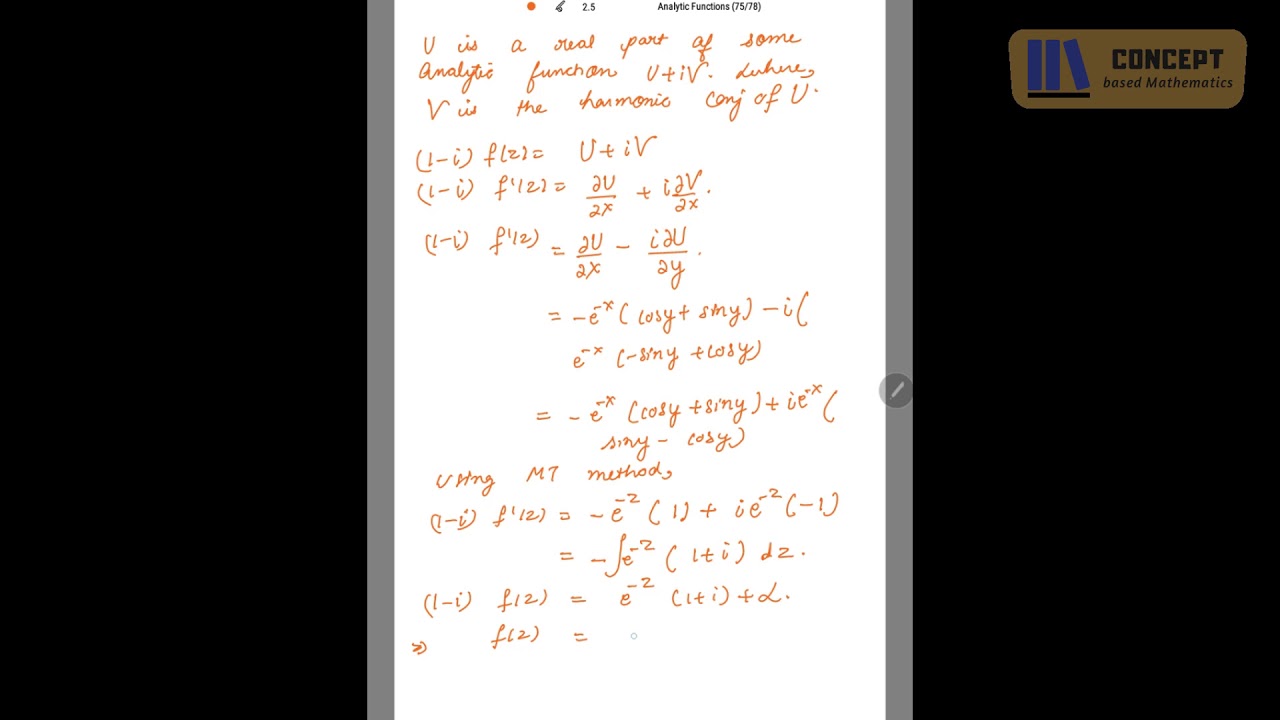 2.5 Analytic Functions (75/78)
CONCEPT
based Mathematics
U is a real part of some
Analytic function U+iV. where,
V is the harmonic conj of U.
(1-i) f(z) = U+iV
(1-i) f'(z) = ∂U/∂x + i∂V/∂x.
(1-i) f'(z) = ∂U/∂x - i∂U/∂y.
= -e^-x (cosy + siny) - i(
e^-x (-siny + cosy)
= -e^-x (cosy + siny) + ie^-x (
siny - cosy)
Using MT method,
(1-i) f'(z) = -e^-z (1) + ie^-z (-1)
= -∫e^-z (1+i) dz.
(1-i) f(z) = e^-z (1+i) + α.
⇒ f(z) =